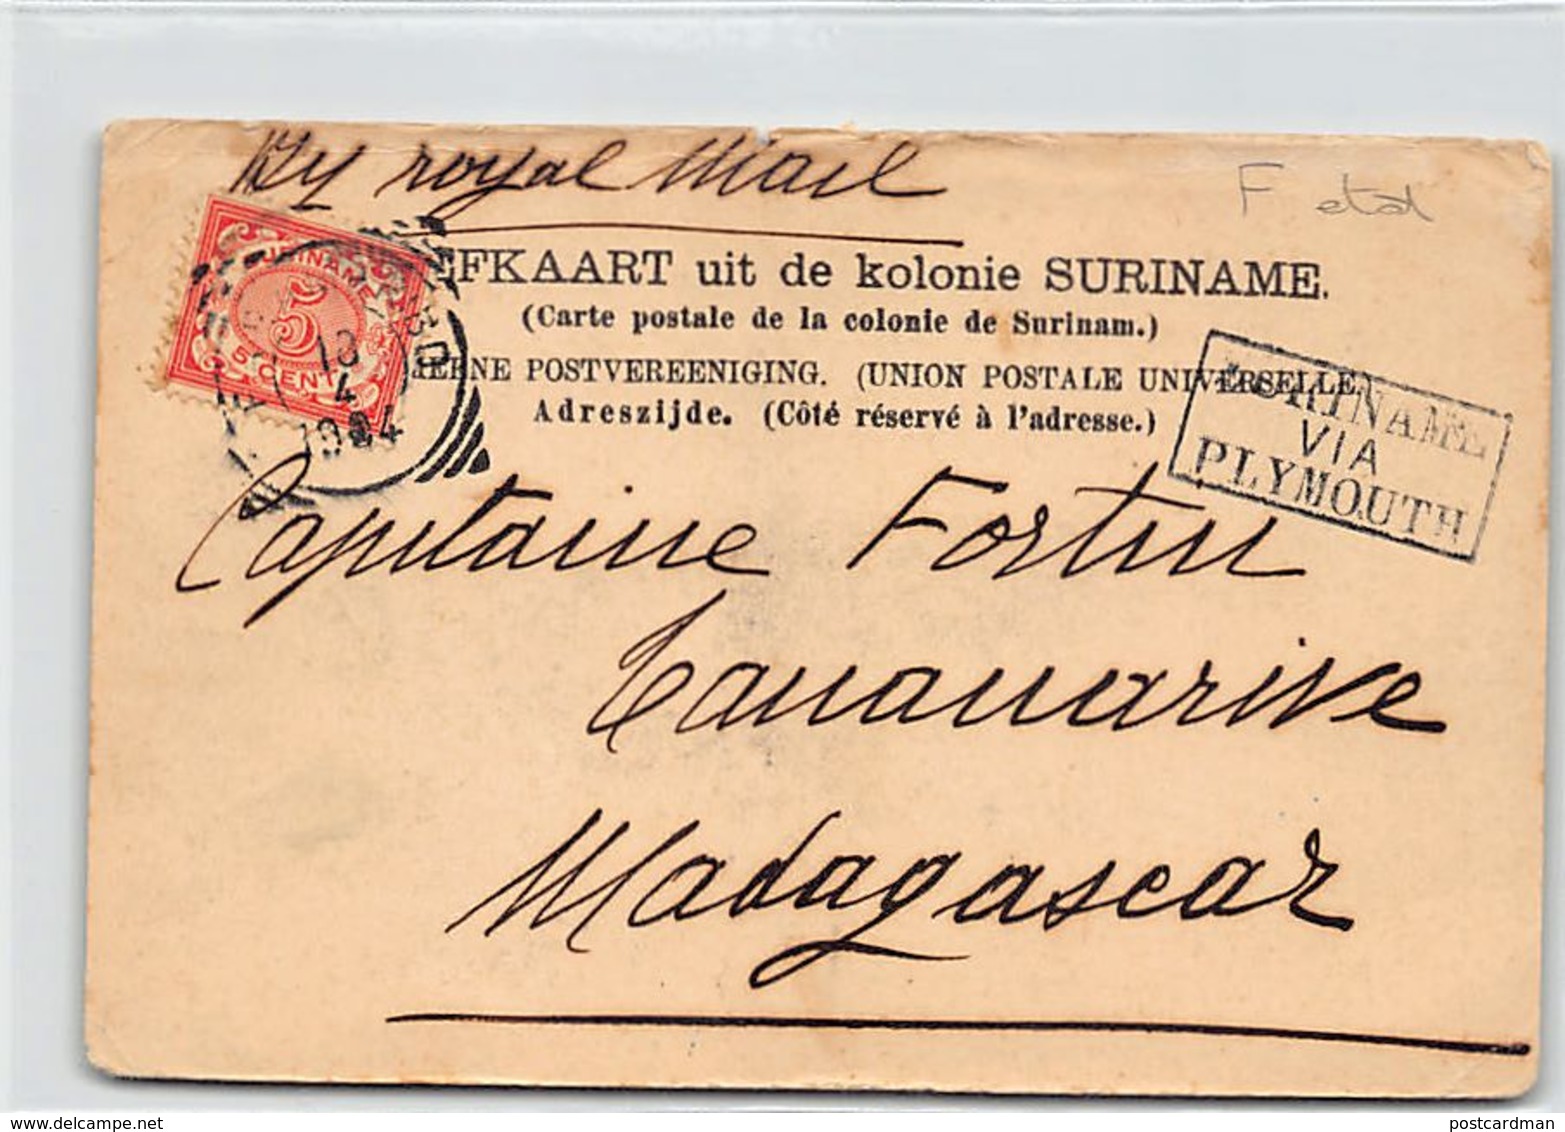 By royal Mail
F etat
EFKAART uit de kolonie SURINAME.
(Carte postale de la colonie de Surinam.)
EENE POSTVEREENIGING. (UNION POSTALE UNIVERSELLE)
Adreszijde. (Côté réservé à l'adresse.)
SURINAME
5
5 CENT
13
4
1904
SURINAME
VIA
PLYMOUTH
Capitaine Fortin
Tananarive
Madagascar
www.delcampe.net
postcardman